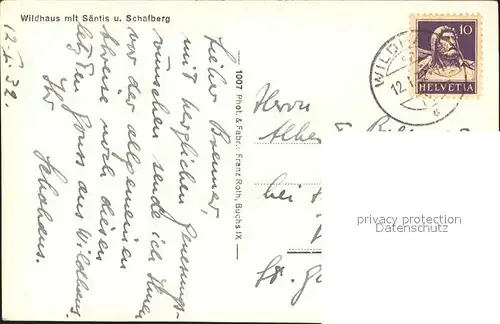 Wildhaus mit Säntis u. Schafberg
12.I.32.
Lieber Brenner,
mit herzlichen Genesungs-
wünschen sende ich Ihnen
vor der allgemeinen
Abreise noch diesen
letzten Gruss aus Wildhaus.
Ihr
1007 Phot. & Fabr. Franz Roth, Buchs IX —
10
HELVETIA
WILDH
12.I
Herrn
bei
St. G
privacy protection
Datenschutz